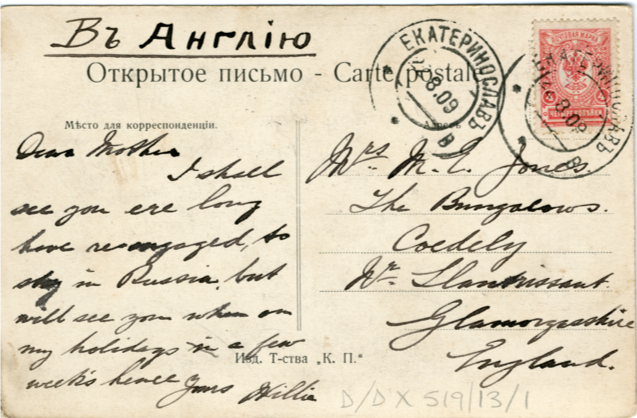 Въ Англію
Открытое письмо - Carte postale
ЕКАТЕРИНОСЛАВЪ
8.09
ЕКАТЕРИНОСЛАВЪ
8.09
Мѣсто для корреспонденціи.
Dear Mother
I shall
see you ere long
have re-engaged, to
stay in Russia, but
will see you when on
my holidays in a few
weeks hence Yours Willie
Mrs M. E. Jones.
The Bungalows.
Coedely
Nr Llantrissant
Glamorganshire
England.
Изд. Т-ства „К. П."
D/DX 519/13/1